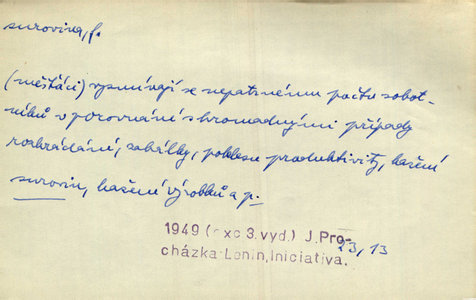 surovina, f.
(měšťáci) vysmívají se nepatrnému počtu sobot-
níků v porovnání s hromadnými případy
rozkrádání, zahálky, poklesu produktivity, kažení
surovin, kažení výrobků a p.
1949 (exc 3.vyd.) J.Pro-
cházka-Lenin, Iniciativa.
23, 13